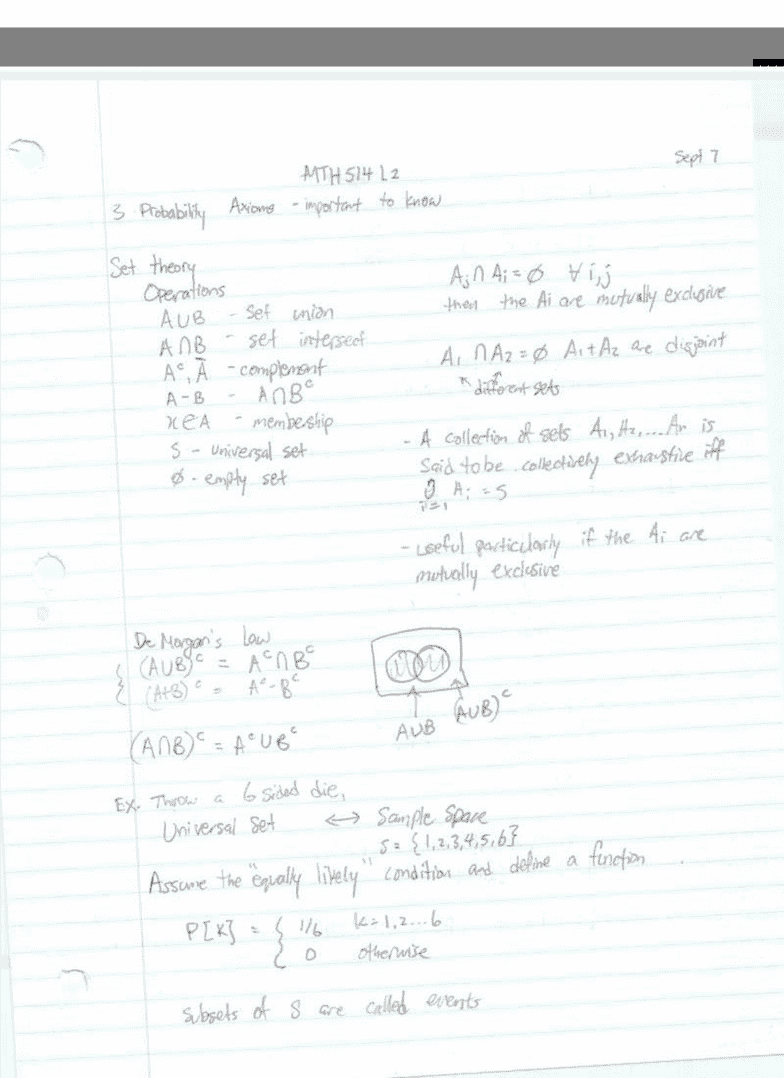 Sept 7
MTH514 L2
3 Probability Axioms - important to know
Set theory
Operations
A∪B - Set union
A∩B - set intersect
Aᶜ, Ā - complement
A-B - A∩Bᶜ
x∈A - membership
S - universal set
∅ - empty set
Aⱼ∩Aᵢ=∅ ∀ i,j
then the Ai are mutually exclusive
A₁∩A₂=∅ A₁+A₂ are disjoint
different sets
- A collection of sets A₁, A₂,...Aₙ is
Said to be collectively exhaustive iff
∪ Aᵢ = S
i=1
- useful particularly if the Ai are
mutually exclusive
De Morgan's Law
(A∪B)ᶜ = Aᶜ∩Bᶜ
(A+B)ᶜ = Aᶜ-Bᶜ
(A∩B)ᶜ = Aᶜ∪Bᶜ
A∪B (A∪B)ᶜ
Ex. Throw a 6 sided die,
Universal Set ↔ Sample Space
S = {1,2,3,4,5,6}
Assume the "equally likely" condition and define a function
P[K] = { 1/6 k=1,2...6
0 otherwise
Subsets of S are called events